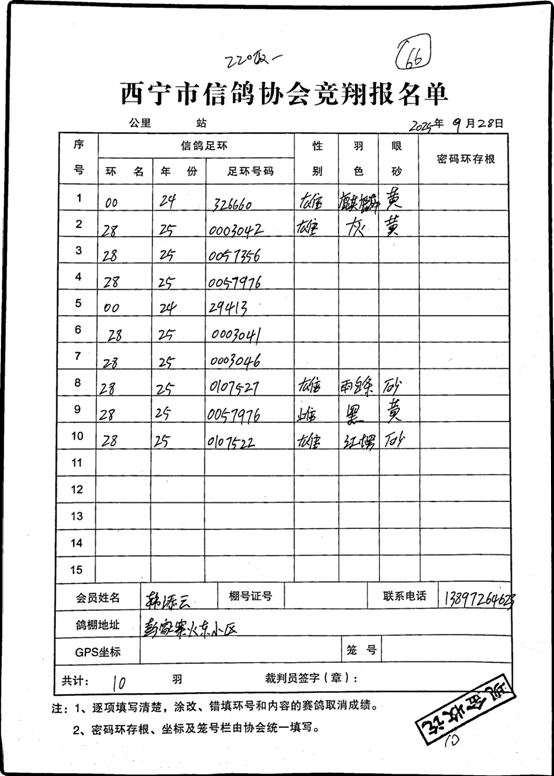 220收一
66
西宁市信鸽协会竞翔报名单
公里 站 2025年9月28日
序号 信鸽足环 性别 羽色 眼砂 密码环存根
环名 年份 足环号码
1 00 24 326660 雄 麒麟 黄
2 28 25 0003042 雄 灰 黄
3 28 25 0057356
4 28 25 0057976
5 00 24 29413
6 28 25 0003041
7 28 25 0003046
8 28 25 0107527 雄 雨条 砂
9 28 25 0057976 雌 黑 黄
10 28 25 0107522 雄 红楞 砂
11
12
13
14
15
会员姓名 韩添云 棚号证号 联系电话 13897264623
鸽棚地址 彭家寨火东小区
GPS坐标 笼号
共计: 10 羽 裁判员签字(章):
注:1、逐项填写清楚,涂改、错填环号和内容的赛鸽取消成绩。
2、密码环存根、坐标及笼号栏由协会统一填写。
现金收讫
10